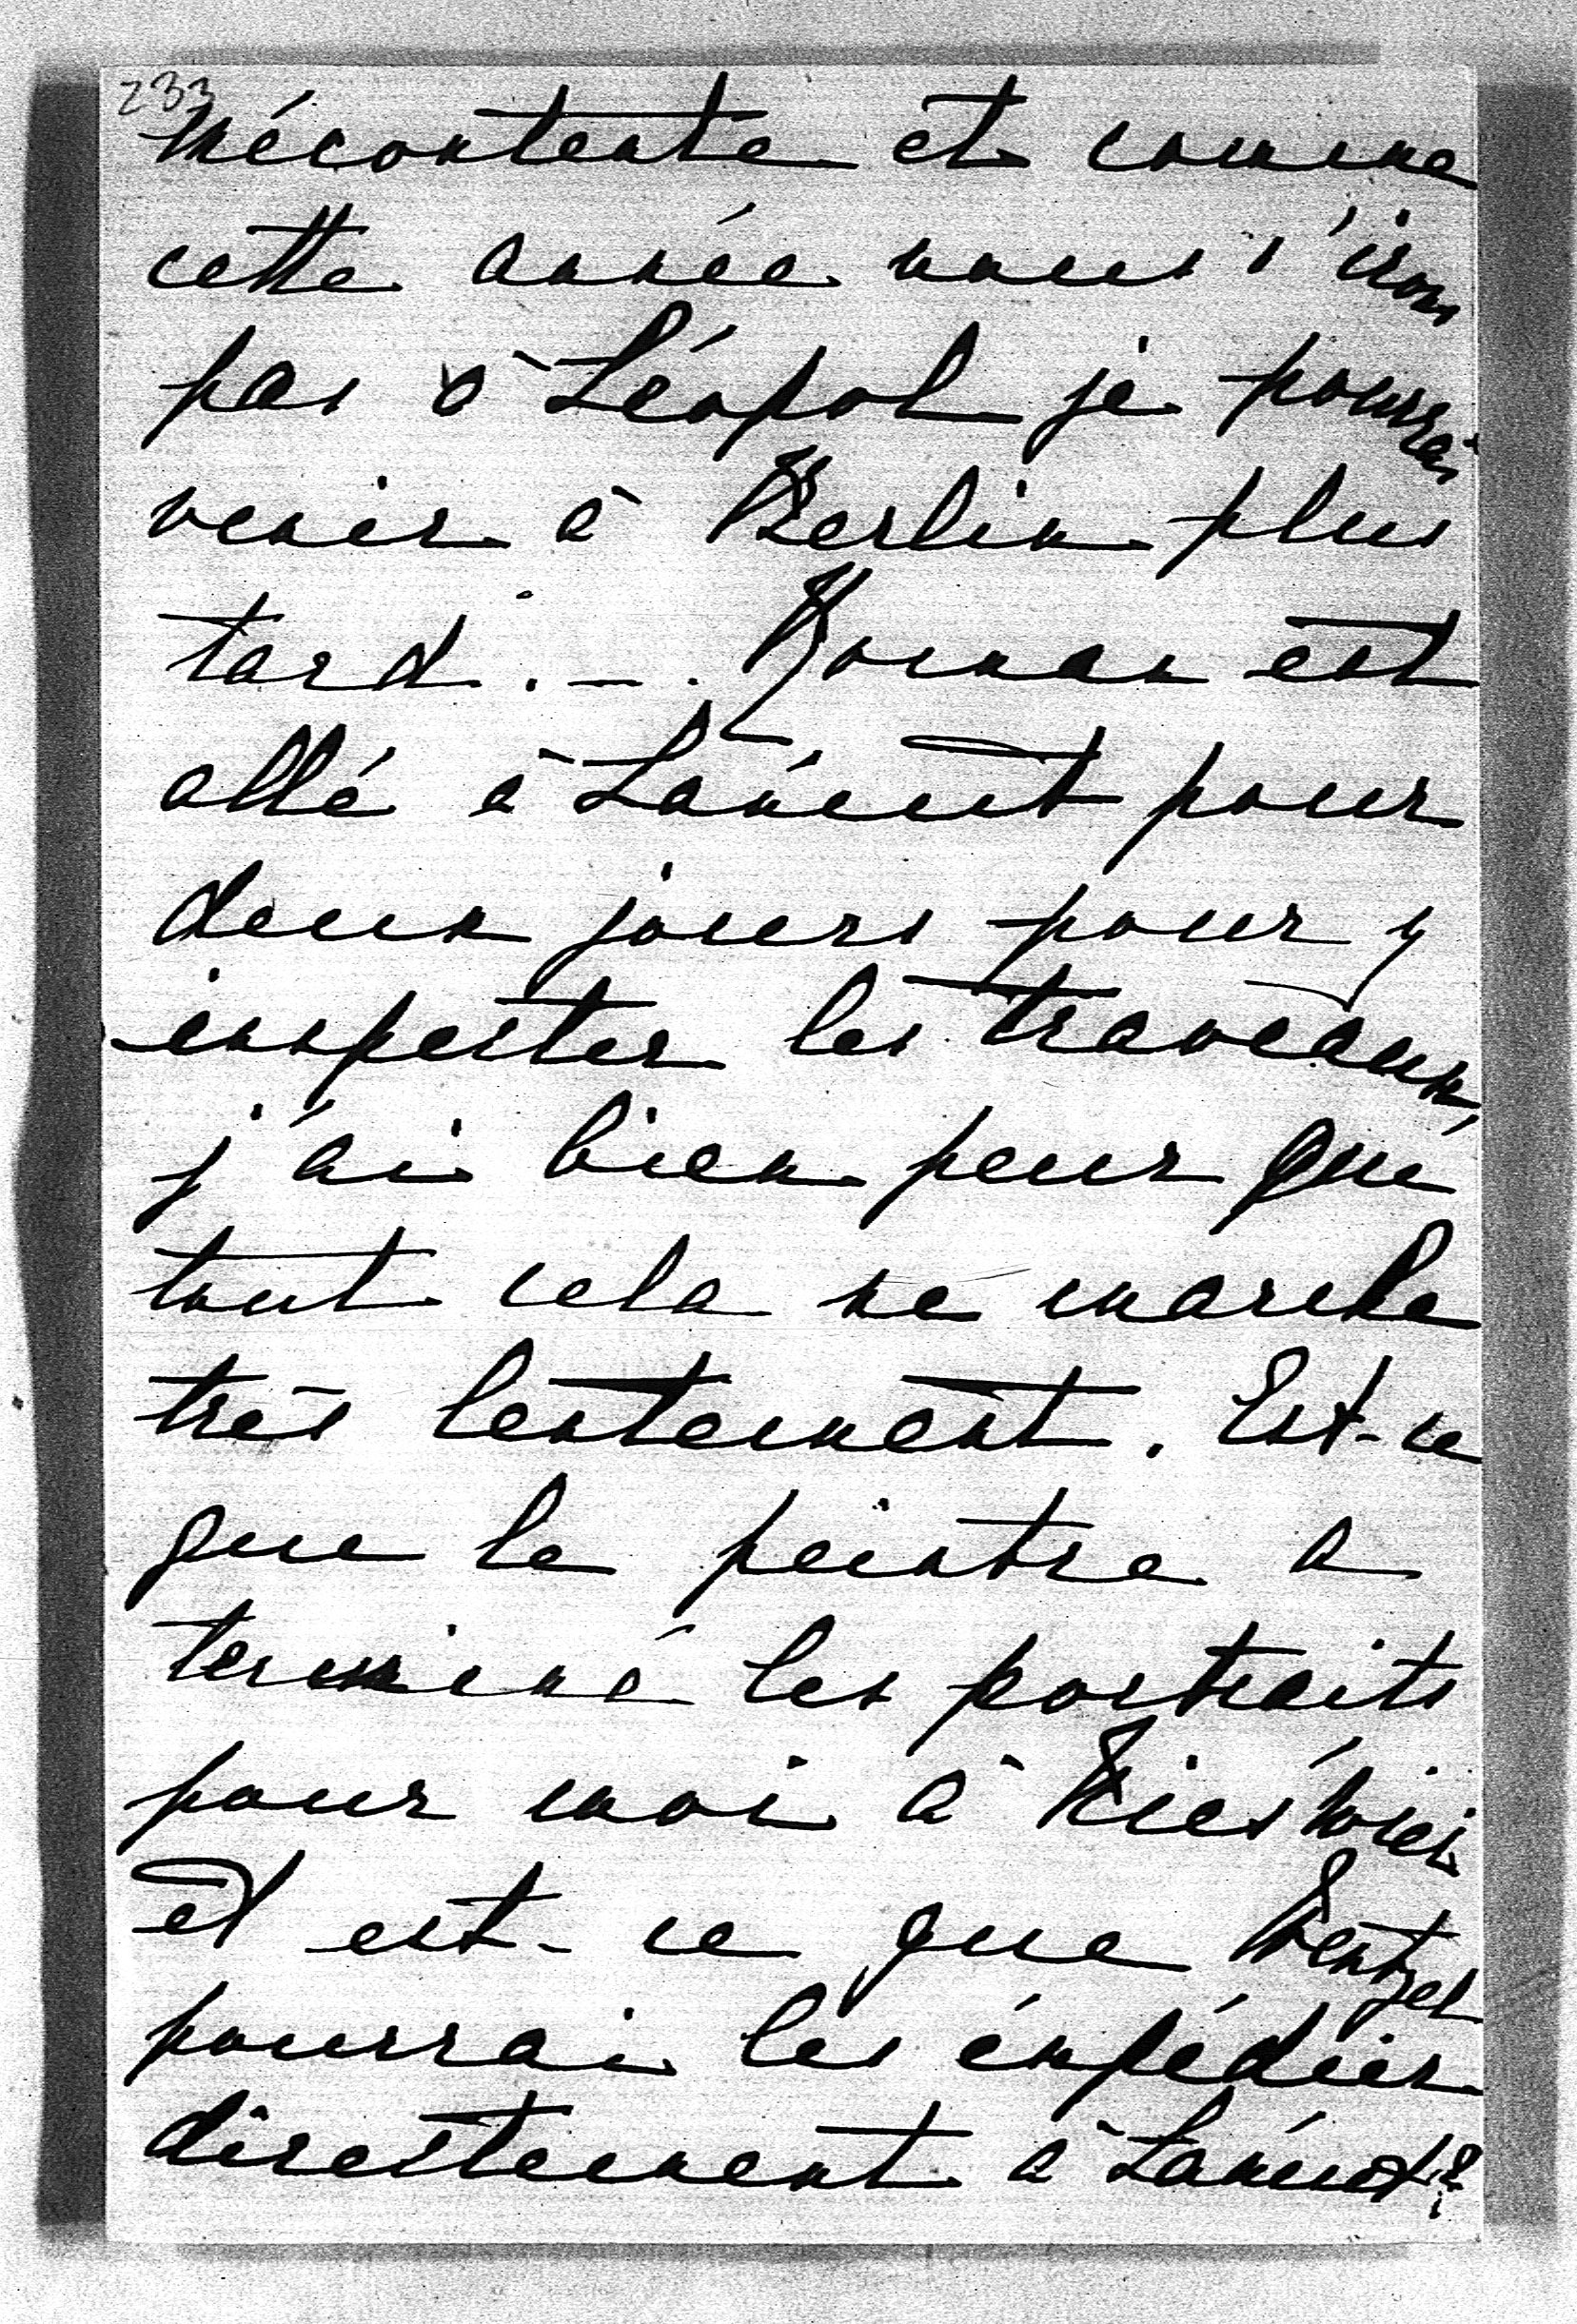 233
mécontente et comme
cette année nous n'irons
pas à Léopol je pourrai
venir à Berlin plus
tard. — Roman est
allé à Lancut pour
deux jours pour y
inspecter les traveaux,
j'ai bien peur que
tout cela ne marche
très lentement. Est-ce
que le peintre a
terminé les portraits
pour moi à Nieświeź
et est-ce que Wentzel
pourrai les expédier
directement à Lancut?